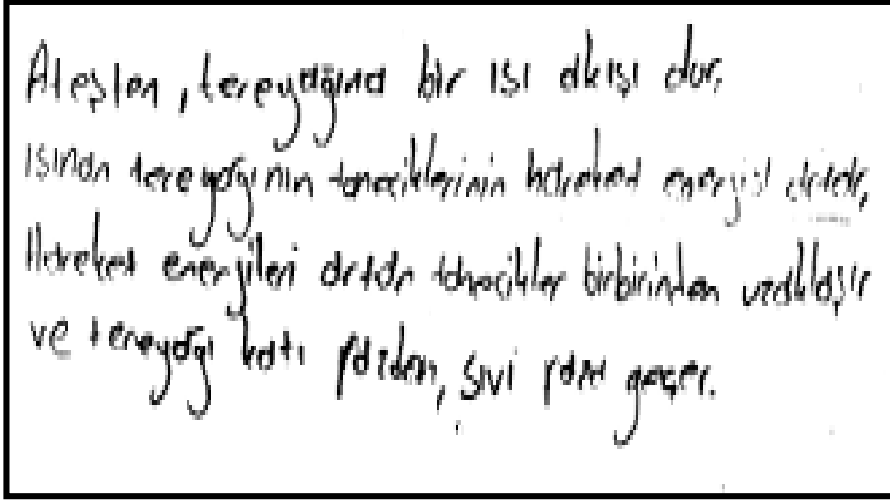 Ateşten, tereyağına bir ısı akışı olur.
Isınan tereyağının taneciklerinin hareket enerjisi artar,
Hareket enerjileri artan tanecikler birbirinden uzaklaşır
ve tereyağı katı fazdan, sıvı faza geçer.